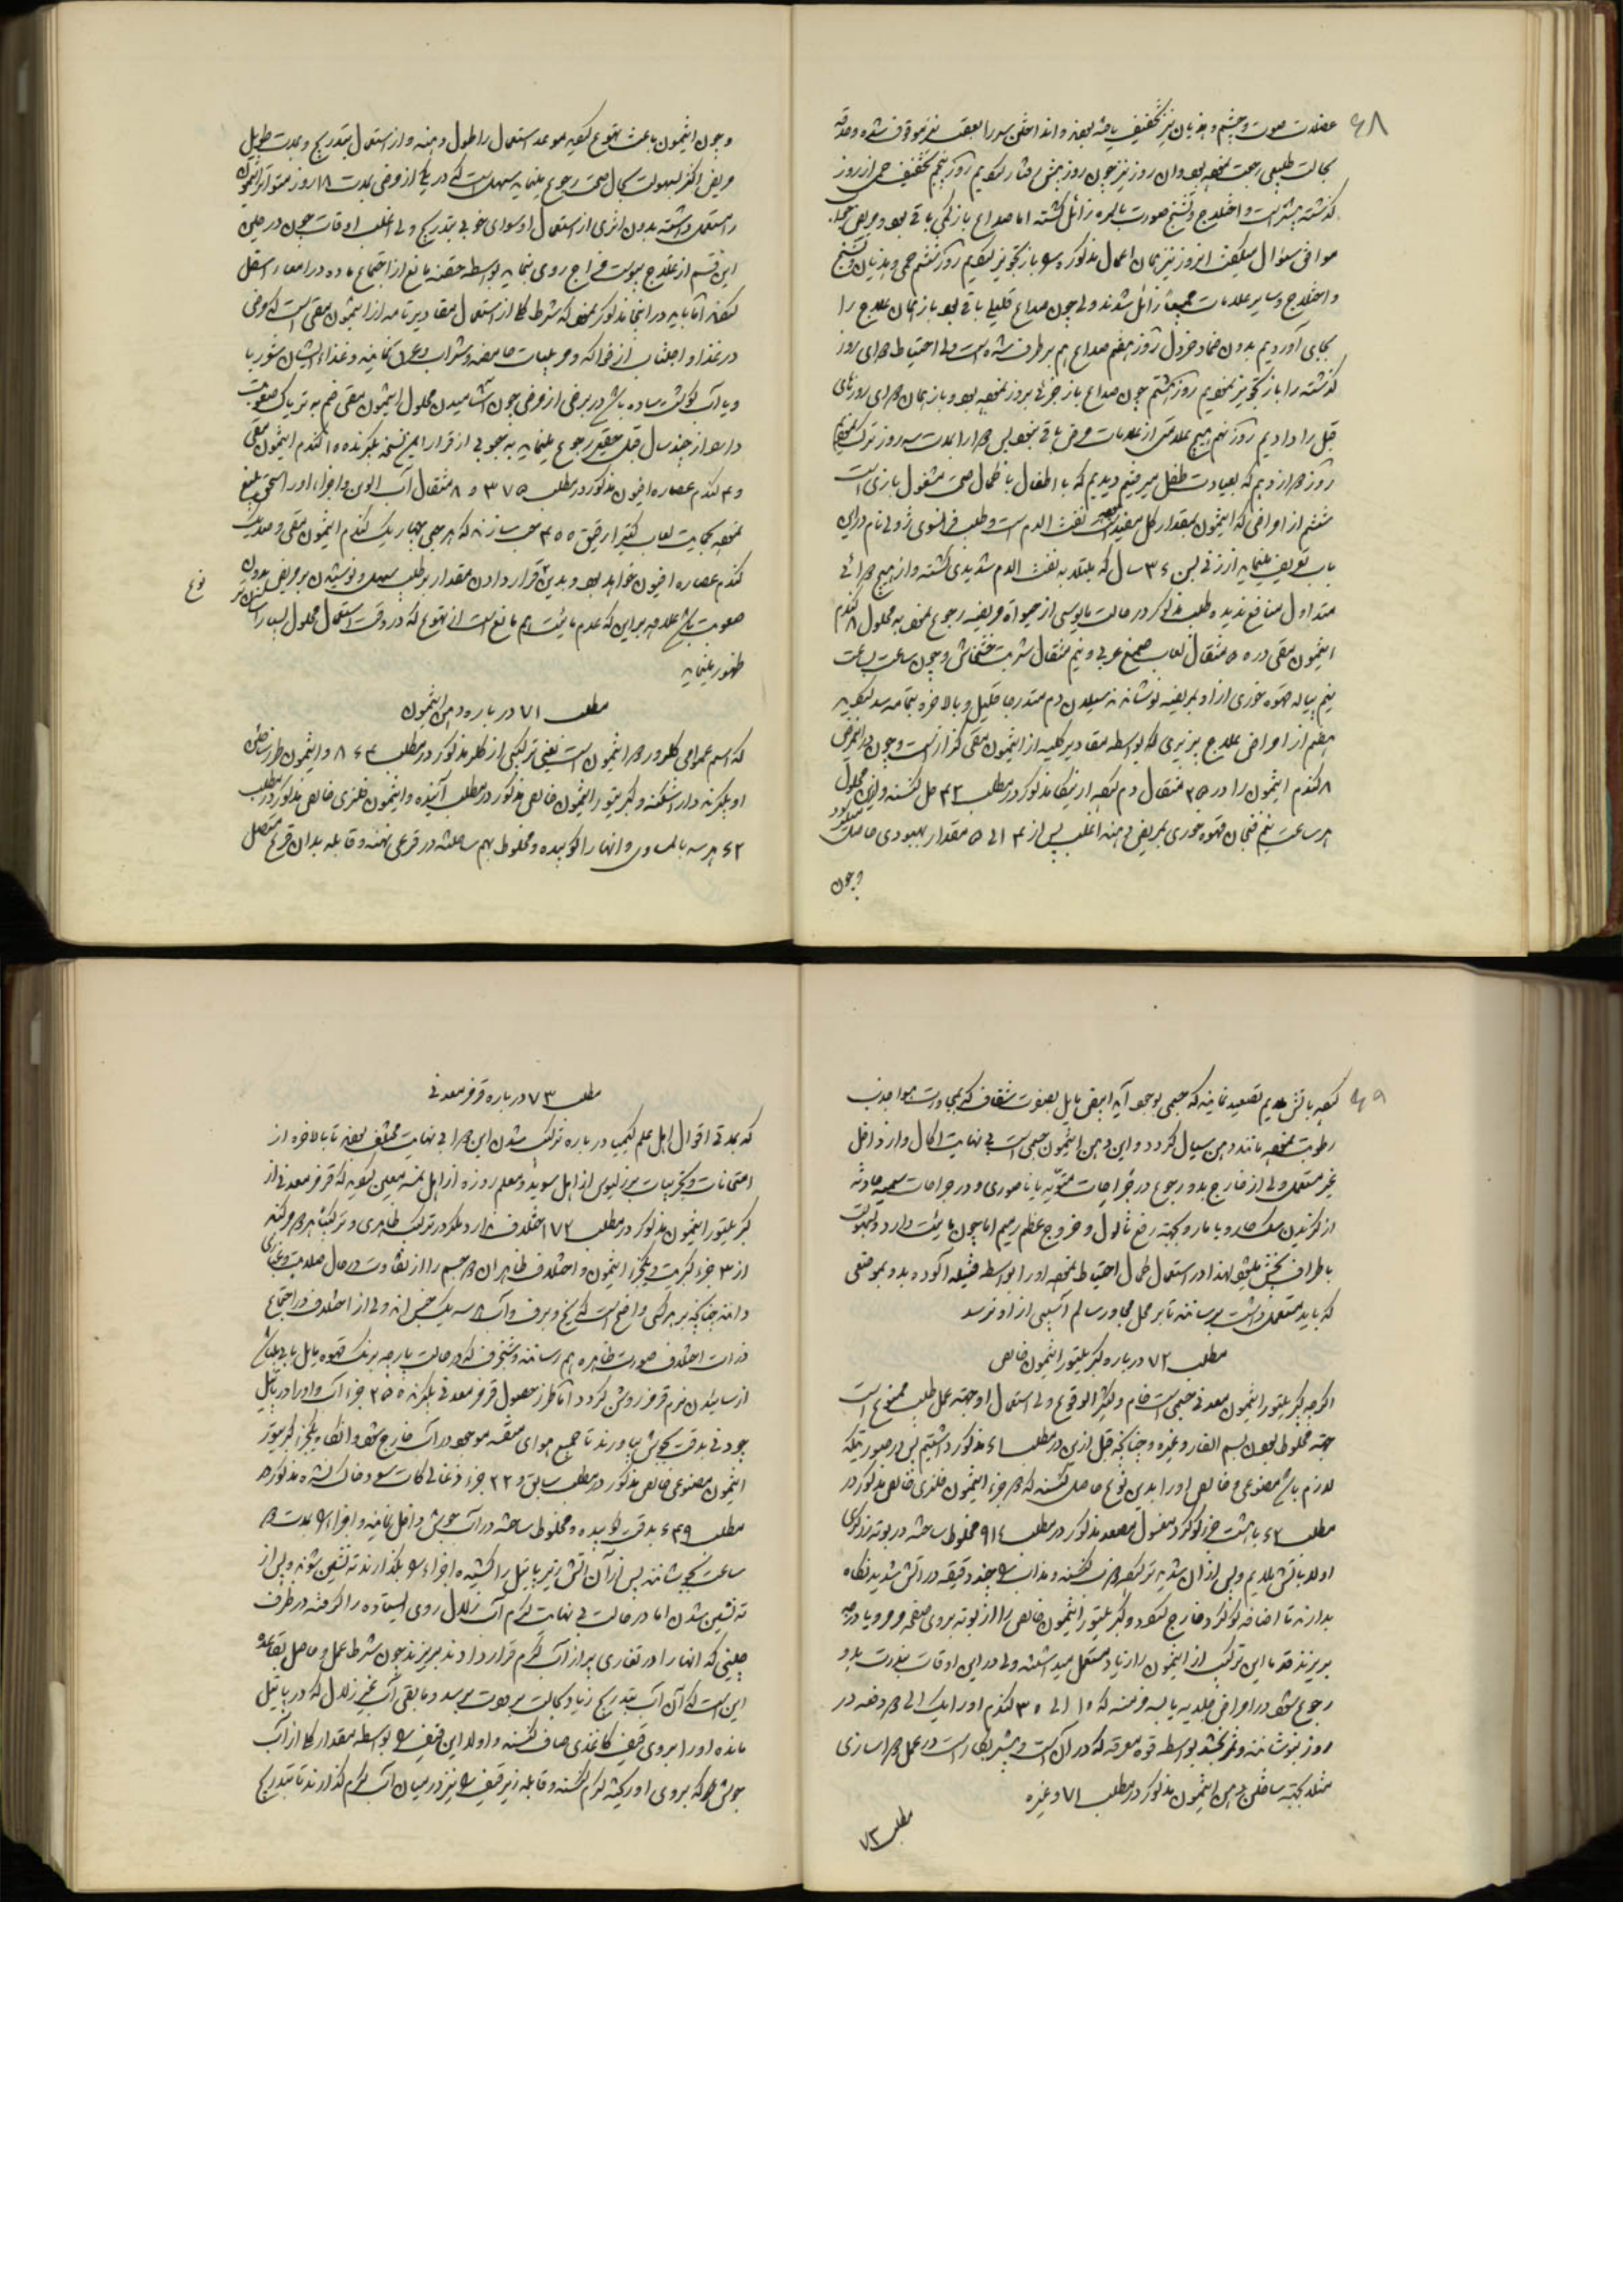 ۶۸
عضلات صورت و چشم و هذیان نیز تخفیف یافته بودند و انداختن سورا بعقب نیز موقوف شده و حدقه
بحالت طبیعی رجعت نموده بود و ان روز نیز چون روز پیش رفتار نمودیم روز پنجم تخفیف حمی از روز
گذشته بیشتر است و اختلاج و تشنج صورت بالمره زائل گشته اما صداع باز کمی باقی بود و مریض
موافق سئوال میگفت امروز نیز همان اعمال مذکوره را باز تجویز نمودیم روز ششم حمی و هذیان و تشنج
و اختلاج و سایر علامات جمیعا زائل شدند ولی چون صداع قلیلی باقی بود باز همان علاج را
بجای آوردیم بدون ضماد خردل روز هفتم صداع هم برطرف شده است ولی احتیاطا دوای روز
گذشته را باز تجویز نمودیم روز هشتم چون صداع باز جزئی بروز نموده بود باز همان دوای روزهای
قبل را دادیم روز نهم هیچ علامتی از علامات مرض باقی نبود پس دوا را بمدت سه روز ترک نمودیم
روز دوازدهم که بعیادت طفل میرفتیم دیدیم که با اطفال با کمال صحت مشغول بازی است
ششم از امراضی که انتیمون بمقدار کلی مفید است نفث الدم است و طبیب فرانسوی ژولی نام در این
باب تعریف مینماید از زنی بسن ۳۶ سال که مبتلا به نفث الدم شدیدی گشته و از هیچ دوائی
متداول منافع ندیده و طبیب مذکور در حالت مایوسی از حیواة مریضه رجوع نمود به محلول ۸ گندم
انتیمون مقی در ۵۰ مثقال لعاب صمغ عربی و نیم مثقال شربت خشخاش و چون ساعت بساعت
نیم پیاله قهوه خوری از او بمریضه نوشاندند سیلان دم متدرجا قلیل و بالاخره بتمامه سد گردید
هفتم از امراض علاج پذیری که بواسطه مقادیر کلیه از انتیمون مقی گزاز است و چون در این مرض
۸ گندم انتیمون را در ۲۵ مثقال دم کرده ارنیکا مذکور در مطلب ۴۲ حل کنند و از این محلول
هر ساعت نیم فنجان قهوه خوری بمریض دهند اغلب پس از ۳ الی ۵ مقدار بهبودی حاصل میگردد
و چون
و چون انتیمون باعث تهوع گردید موعد استعمال را طول دهند و از استعمال بتدریج و بمدت طویل
مریض اکثر بسهولت بحال صحت رجوع مینماید سهل است که در یکی از مرضی بمدت ۱۸ روز متواتر انتیمون
را مستعمل داشته بدون اثری از استعمال او سوای خوبی بتدریج ولی اغلب اوقات چون در حین
این قسم از علاج یبوست مزاج روی نماید بواسطه حقنه مانع از اجتماع ماده در امعاء اسفل
گردند اما باید در اینجا مذکور نمود که شرط کلی از استعمال مقادیر تامه از انتیمون مقی است که مرضی
در غذا و اجتناب از فواکه و مربیات حامضه و شراب و عرق نمایند و غذای ایشان شوربا
و یا آب گوشت ساده باشد در برخی از مرضی چون آشامیدن محلول انتیمون مقی ضم به تریاک صعوبت
دارد از چند سال قبل حقیر رجوع مینماید به حبوبی از قرار این نسخه بگیرند ۱۵ گندم انتیمون مقی
و ۳ گندم عصاره افیون مذکور در مطلب ۳۷۵ و ۸ مثقال آب الوین و اجزاء او را سحق بلیغ
نموده بحمایت لعاب کتیرا رقیق ۴۵۵ حب سازند که هر حبی چهار یک گندم انتیمون مقی و صد یک
گندم عصاره افیون خواهد بود و بدین قرار دادن مقدار بر طبیب سهل و نوشیدن بر مریض بدون
صعوبت باشد علاوه بر این که عدم مائیت هم مانع است از تهوع که در وقت استعمال محلول بسیار آسان تر
ظهور مینماید
نوع
مطلب ۷۱ درباره دهن انتیمون
که اسم عوامی کلرور دو انتیمون است یعنی ترکیبی از کلر مذکور در مطلب ۸۶۳ و انتیمون طرز ساختن
او بگیرند دار اشکنه و کبریتور انتیمون خالص مذکور در مطلب آینده و انتیمون فلزی خالص مذکور در مطلب
۶۲ هر سه بالمساوی و انها را کوبیده و مخلوط بهم ساخته در قرعی نهند و قابله بدان قرع متصل
۶۹
کرده باتش ملایم تصعید نمایند که جسمی بوجود آید ابیض مایل بصفرت شفاف که بمجاورت هوا جذب
رطوبت نموده مانند دهن سیال گردد و این دهن انتیمون جسمی است بی نهایت اکال و از داخل
غیر مستعمل ولی از خارج بدو رجوع در جراحات متقیه یا ناصوری و در جراحات سمیه حادثه
از گزندن سگ هار و یا مار و بجهة رفع ثالول و خروج عظم رمیم اما چون مائیت دارد و بسهولت
باطراف پخش میشود لهذا در استعمال کمال احتیاط نموده او را بواسطه فتیله آلوده بدو بموضعی
که باید مستعمل داشت برسانند تا بر محل مجاور سالم آسیبی از او نرسد
مطلب ۷۲ درباره کبریتور انتیمون خالص
اگر چه کبریتور انتیمون معدنی جسمی است خام و کثیر الوقوع ولی استعمال او جهة عمل طب ممنوع است
جهة مخلوط بودن بسم الفار و غیره و چنانکه قبل از این در مطلب ۶۱ مذکور داشتیم پس در صورتیکه
لازم باشد مصنوعی و خالص او را بدین نوع حاصل کنند که دو جزء انتیمون فلزی خالص مذکور در
مطلب ۶۲ با هشت جزء گوگرد مغسول مصعد مذکور در مطلب ۹۱۴ مخلوط ساخته در بوته زرگری
اولا باتش ملایم و پس از آن شدیدتر کرده ذوب کنند و مذاب را چند دقیقه در آتش شدید نگاه
بدارند تا اضافه گوگرد خارج گردد و کبریتور انتیمون خالص را از بوته بروی صفحه مرمر یا درجه
بریزند قدما این ترکیب از انتیمون را زیاد مستعمل میداشتند ولی در این اوقات بندرت بدو
رجوع شود در امراض جلدیه یابسه مزمنه که ۱۰ الی ۳۰ گندم او را یک الی دو دفعه در
روز نوشانند و ثمر بخشد بواسطه قوه معرقه که در آن است و بیشتر بکار است در عمل دوا سازی
مثلا بجهة ساختن دهن انتیمون مذکور در مطلب ۷۱ و غیره
مطلب ۷۳
مطلب ۷۳ درباره قرمز معدنی
که بمدتی اقوال اهل علم کیمیا درباره ترکیب شدن این دوا بی نهایت مختلف بودند تا بالاخره از
امتحانات و تجربیات برزلیوس از اهل سوید و معلم روزه از اهل نمسه معین گردید که قرمز معدنی از
کبریتور انتیمون مذکور در مطلب ۷۲ اختلاف ندارد مگر در ترکیب ظاهری و ترکیبا هر دو مرکبند
از ۳ جزء کبریت و یکجزء انتیمون و اختلاف ظاهر ان دو جسم را از تفاوت در حال صلابت و غباری
دانند چنانکه بر هر کس واضح است که یخ و برف و آب هر سه یک جنس اند ولی از اختلاف در اجتماع
ذرات اختلاف صورت ظاهره بهم رسانند و شنجرف که در حالت پارچه برنک قهوه مایل بابی باشد
از سائیدن نرم قرمز روشن گردد اما طرز حصول قرمز معدنی بگیرند ۲۵۵ جزء آب و او را در پاتیل
چودنی بدقت بجوش بیاورند تا جمیع هوای متفرقه موجود در آب خارج شود و انگاه یکجزء کبریتور
انتیمون مصنوعی خالص مذکور در مطلب سابق و ۲۲ جزء ذغالی کات سود خالک نشده مذکور در
مطلب ۶۳۹ بدقت کوبیده و مخلوط ساخته در آب جوش داخل نمایند و اجزاء را بمدت دو
ساعت بجوشانند پس از آن آتش زیر پاتیل را کشیده اجزاء را بگذارند ته نشین شوند و پس از
ته نشین شدن اما در حالت بی نهایت گرم آب زلال روی ایستاده را گرفته در ظرف
چینی که انها را در تغاری پر از آب گرم قرار دادند بریزند چون شرط عمل و حاصل بقاعده
این است که آن آب بتدریج زیاد بحالت برودت برسد و مابقی آب غیر زلال که در پاتیل
مانده او را بروی قیف کاغذی صاف کنند و اولا این قیف را بواسطه مقدار کلی از آب
جوش که بروی او ریخته گرم کنند و قابله زیر قیف را نیز در میان آب گرم گذارند تا بتدریج